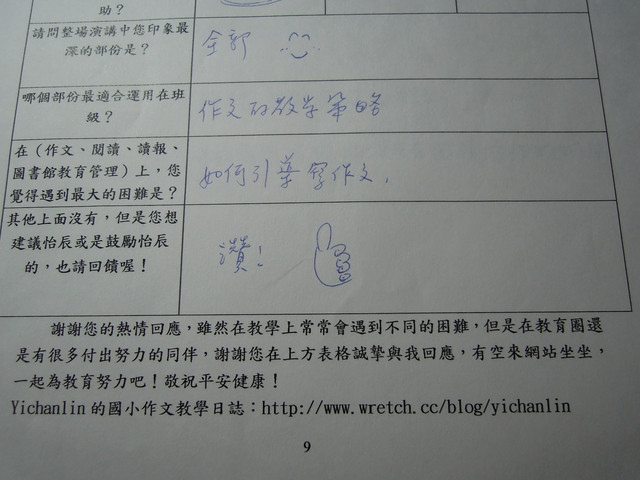 助？
請問整場演講中您印象最
深的部份是？
全部
哪個部份最適合運用在班
級？
作文的教学策略
在（作文、閱讀、讀報、
圖書館教育管理）上，您
覺得遇到最大的困難是？
如何引導寫作文.
其他上面沒有，但是您想
建議怡辰或是鼓勵怡辰
的，也請回饋喔！
讚！
謝謝您的熱情回應，雖然在教學上常常會遇到不同的困難，但是在教育圈還
是有很多付出努力的同伴，謝謝您在上方表格誠摯與我回應，有空來網站坐坐，
一起為教育努力吧！敬祝平安健康！
Yichanlin 的國小作文教學日誌：http://www.wretch.cc/blog/yichanlin
9